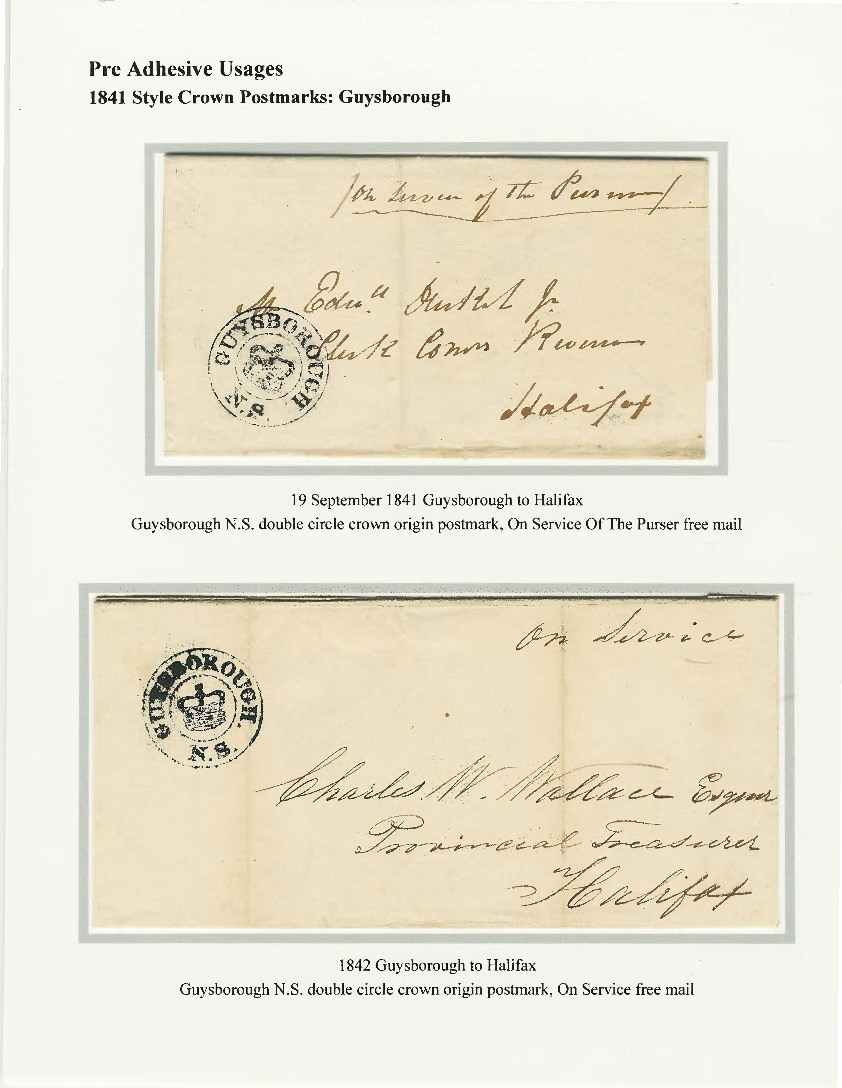 Pre Adhesive Usages
1841 Style Crown Postmarks: Guysborough
On Service of the Purser
Mr Edwd. Jr.
GUYSBOROUGH
Clerk Comrs Revenue
N.S.
Halifax
19 September 1841 Guysborough to Halifax
Guysborough N.S. double circle crown origin postmark, On Service Of The Purser free mail
On Service
GUYSBOROUGH.
N.S.
Charles W. Wallace Esquir
Provincial Treasurer
Halifax
1842 Guysborough to Halifax
Guysborough N.S. double circle crown origin postmark, On Service free mail